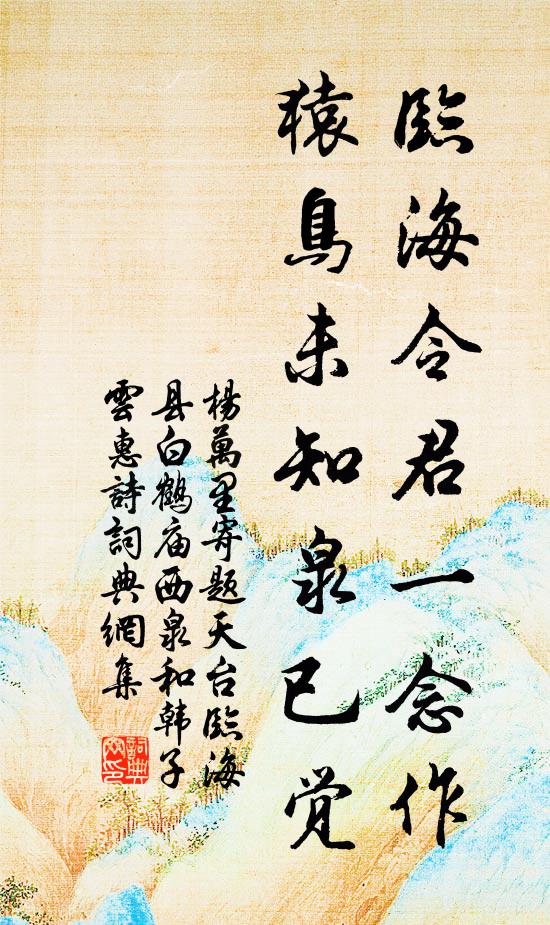 臨海令君一念作
猿鳥未知泉已觉
楊萬里寄題天台臨海
县白鶴庙西泉和韩子
雲惠詩詞典網集
詞典